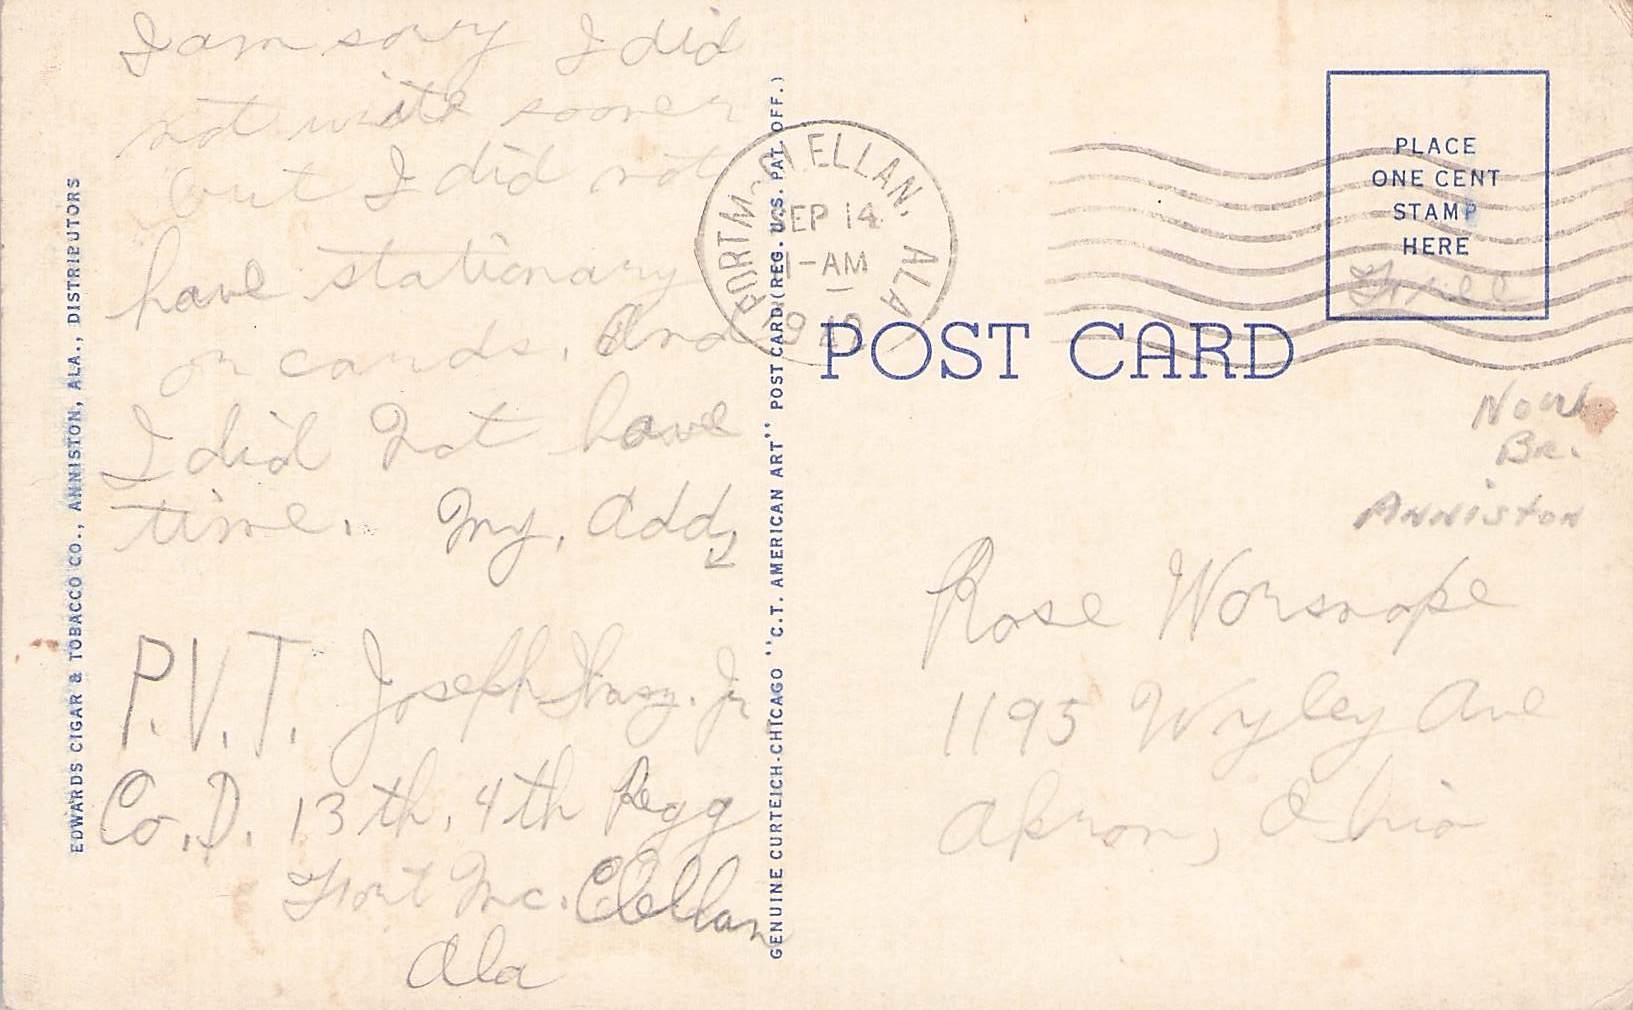 I am sorry I did
not write sooner
but I did not
have stationary
or cards, And
I did not have
time. My, Add,
P.V.T. Joseph Jr.
Co. D. 13th, 4th Regg
Fort Mc. Clellan
Ala
EDWARDS CIGAR & TOBACCO CO., ANNISTON, ALA., DISTRIBUTORS
GENUINE CURTEICH-CHICAGO "C.T. AMERICAN ART" POST CARD (REG. U.S. PAT. OFF.)
FORT McCLELLAN, ALA
SEP 14
1-AM
PLACE
ONE CENT
STAMP
HERE
Free
POST CARD
Br.
ANNISTON
Rose Worsnope
1195 Wyley Ave
Akron, Ohio